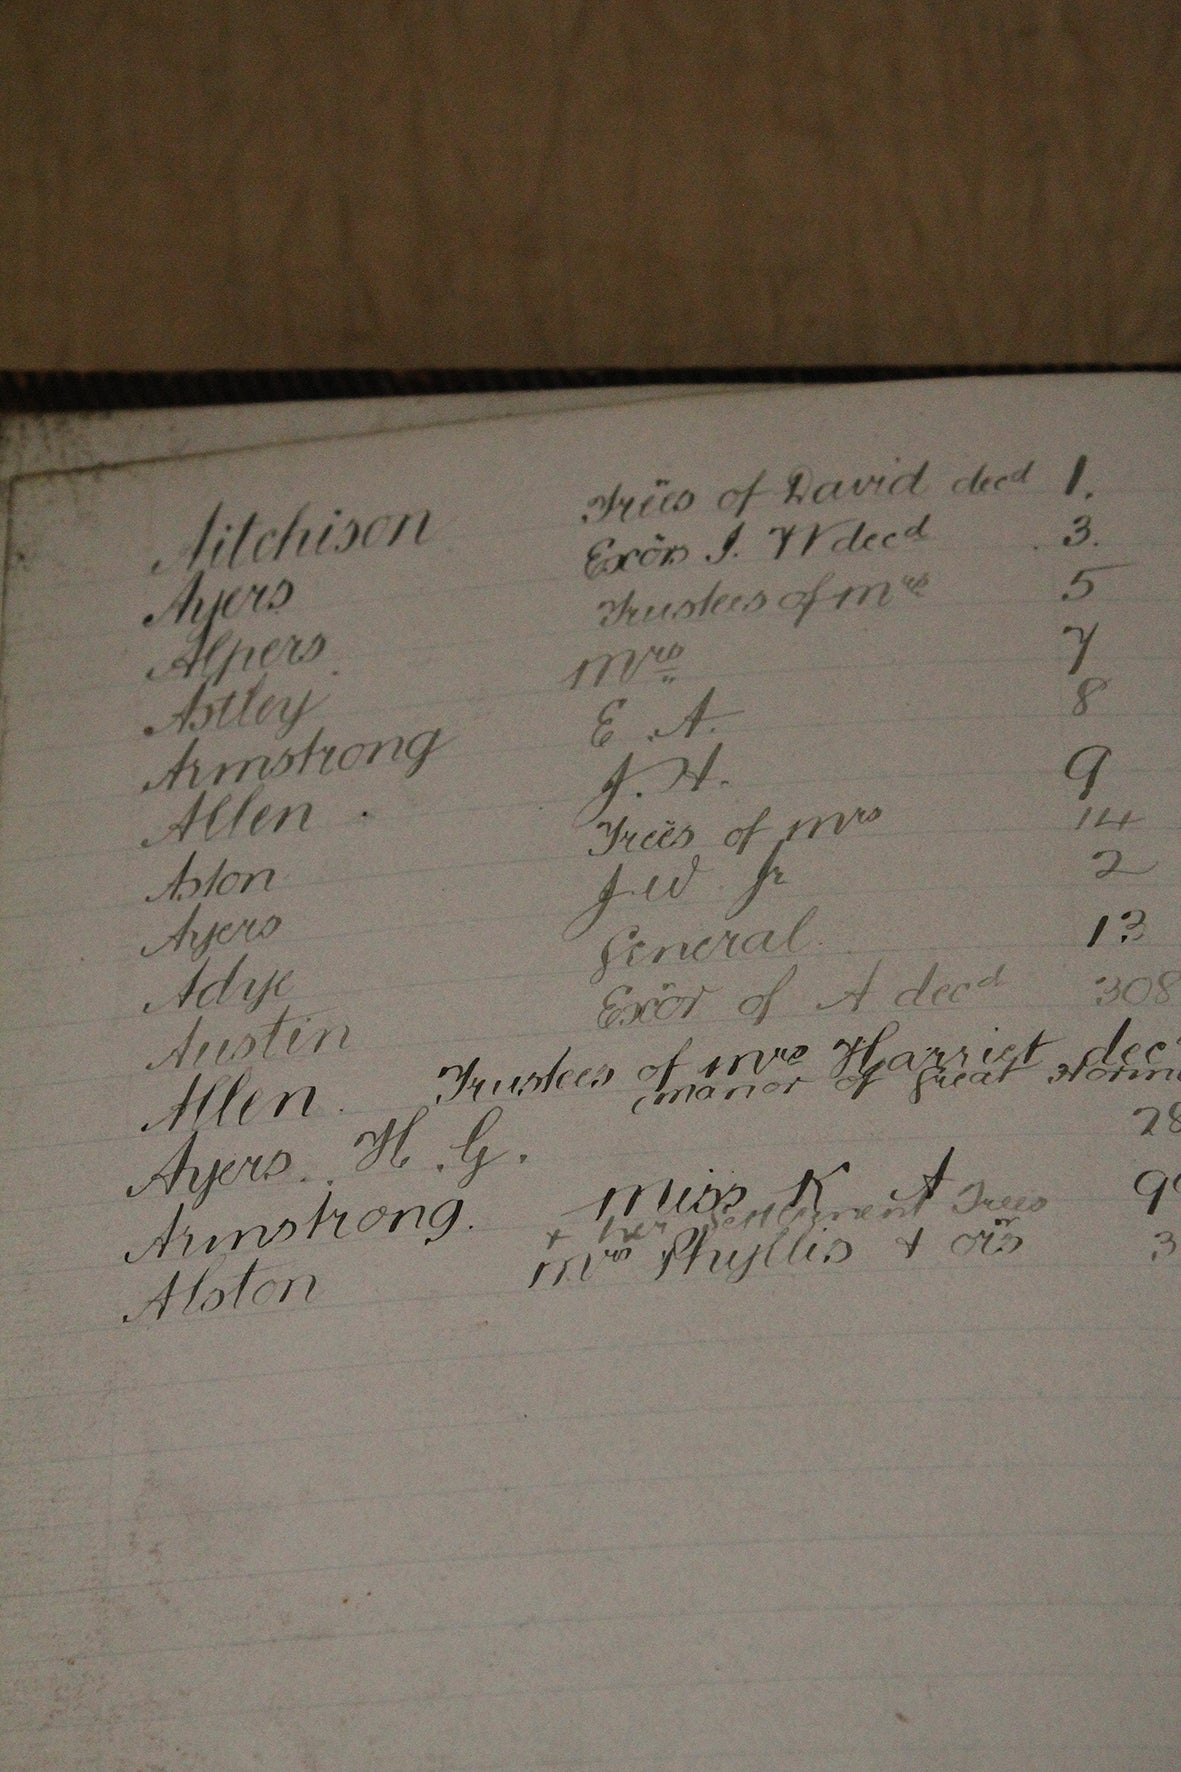 Aitchison Trees of David decd 1.
Ayers Exors J. W decd 3.
Alpers Trustees of Mrs 5
Astley Mrs 7
Armstrong E. A. 8
Allen. J. H. 9
Aston Trees of Mrs 14
Ayers J W Jr 2
Adye General 13
Austin Exor of A decd 308
Allen. Trustees of Mrs Harriet decd
(Manor of Great
Ayers. H. G. 28
Armstrong. Miss K A 9
+ her Settlement Trees
Alston Mrs Phyllis + ors 3